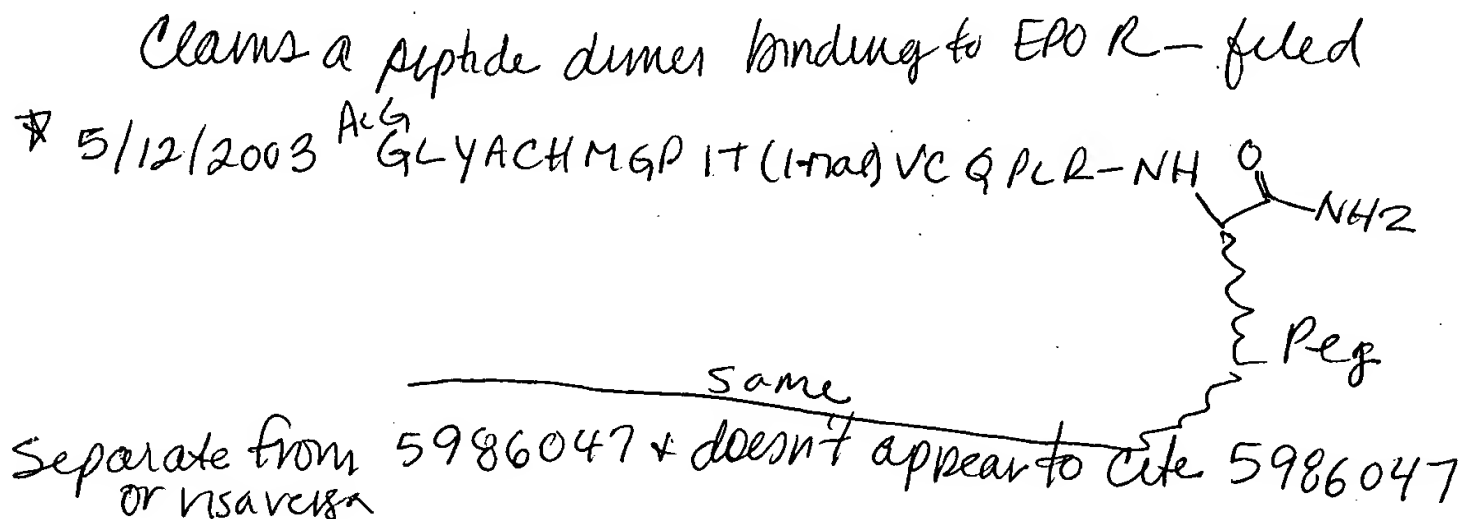 Claims a peptide dimer binding to EPO R – filed
* 5/12/2003 AcG GLYACHMGP IT (1-nal) VC Q PLR-NH O
NH2
Peg
same
Separate from 5986047 & doesn't appear to cite 5986047
or visaversa